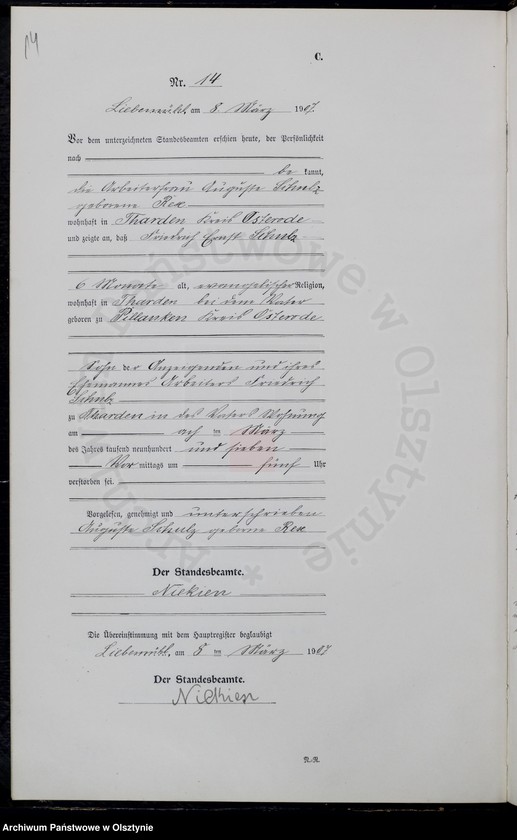 14
C.
Nr. 14
Liebemühl, am 8 März 1907.
Vor dem unterzeichneten Standesbeamten erschien heute, der Persönlichkeit
nach
be kannt,
die Arbeiterfrau Auguste Schulz
geborene Rex
wohnhaft in Tharden Kreis Osterode
und zeigte an, daß Friedrich Ernst Schulz
6 Monate alt, evangelischer Religion,
wohnhaft in Tharden bei dem Vater
geboren zu Pillauken Kreis Osterode
Sohn der Anzeigenden und ihres
Ehemannes Arbeiters Friedrich
Schulz
zu Tharden in des Vaters Wohnung
am acht ten März
des Jahres tausend neunhundert und sieben
Vor mittags um fünf Uhr
verstorben sei.
Vorgelesen, genehmigt und unterschrieben
Auguste Schulz geborne Rex
Der Standesbeamte.
Niekien
Die Übereinstimmung mit dem Hauptregister beglaubigt
Liebemühl, am 8 ten März 1907
Der Standesbeamte.
Niekien
Archiwum Państwowe w Olsztynie
* Archiwum Państwowe w Olsztynie